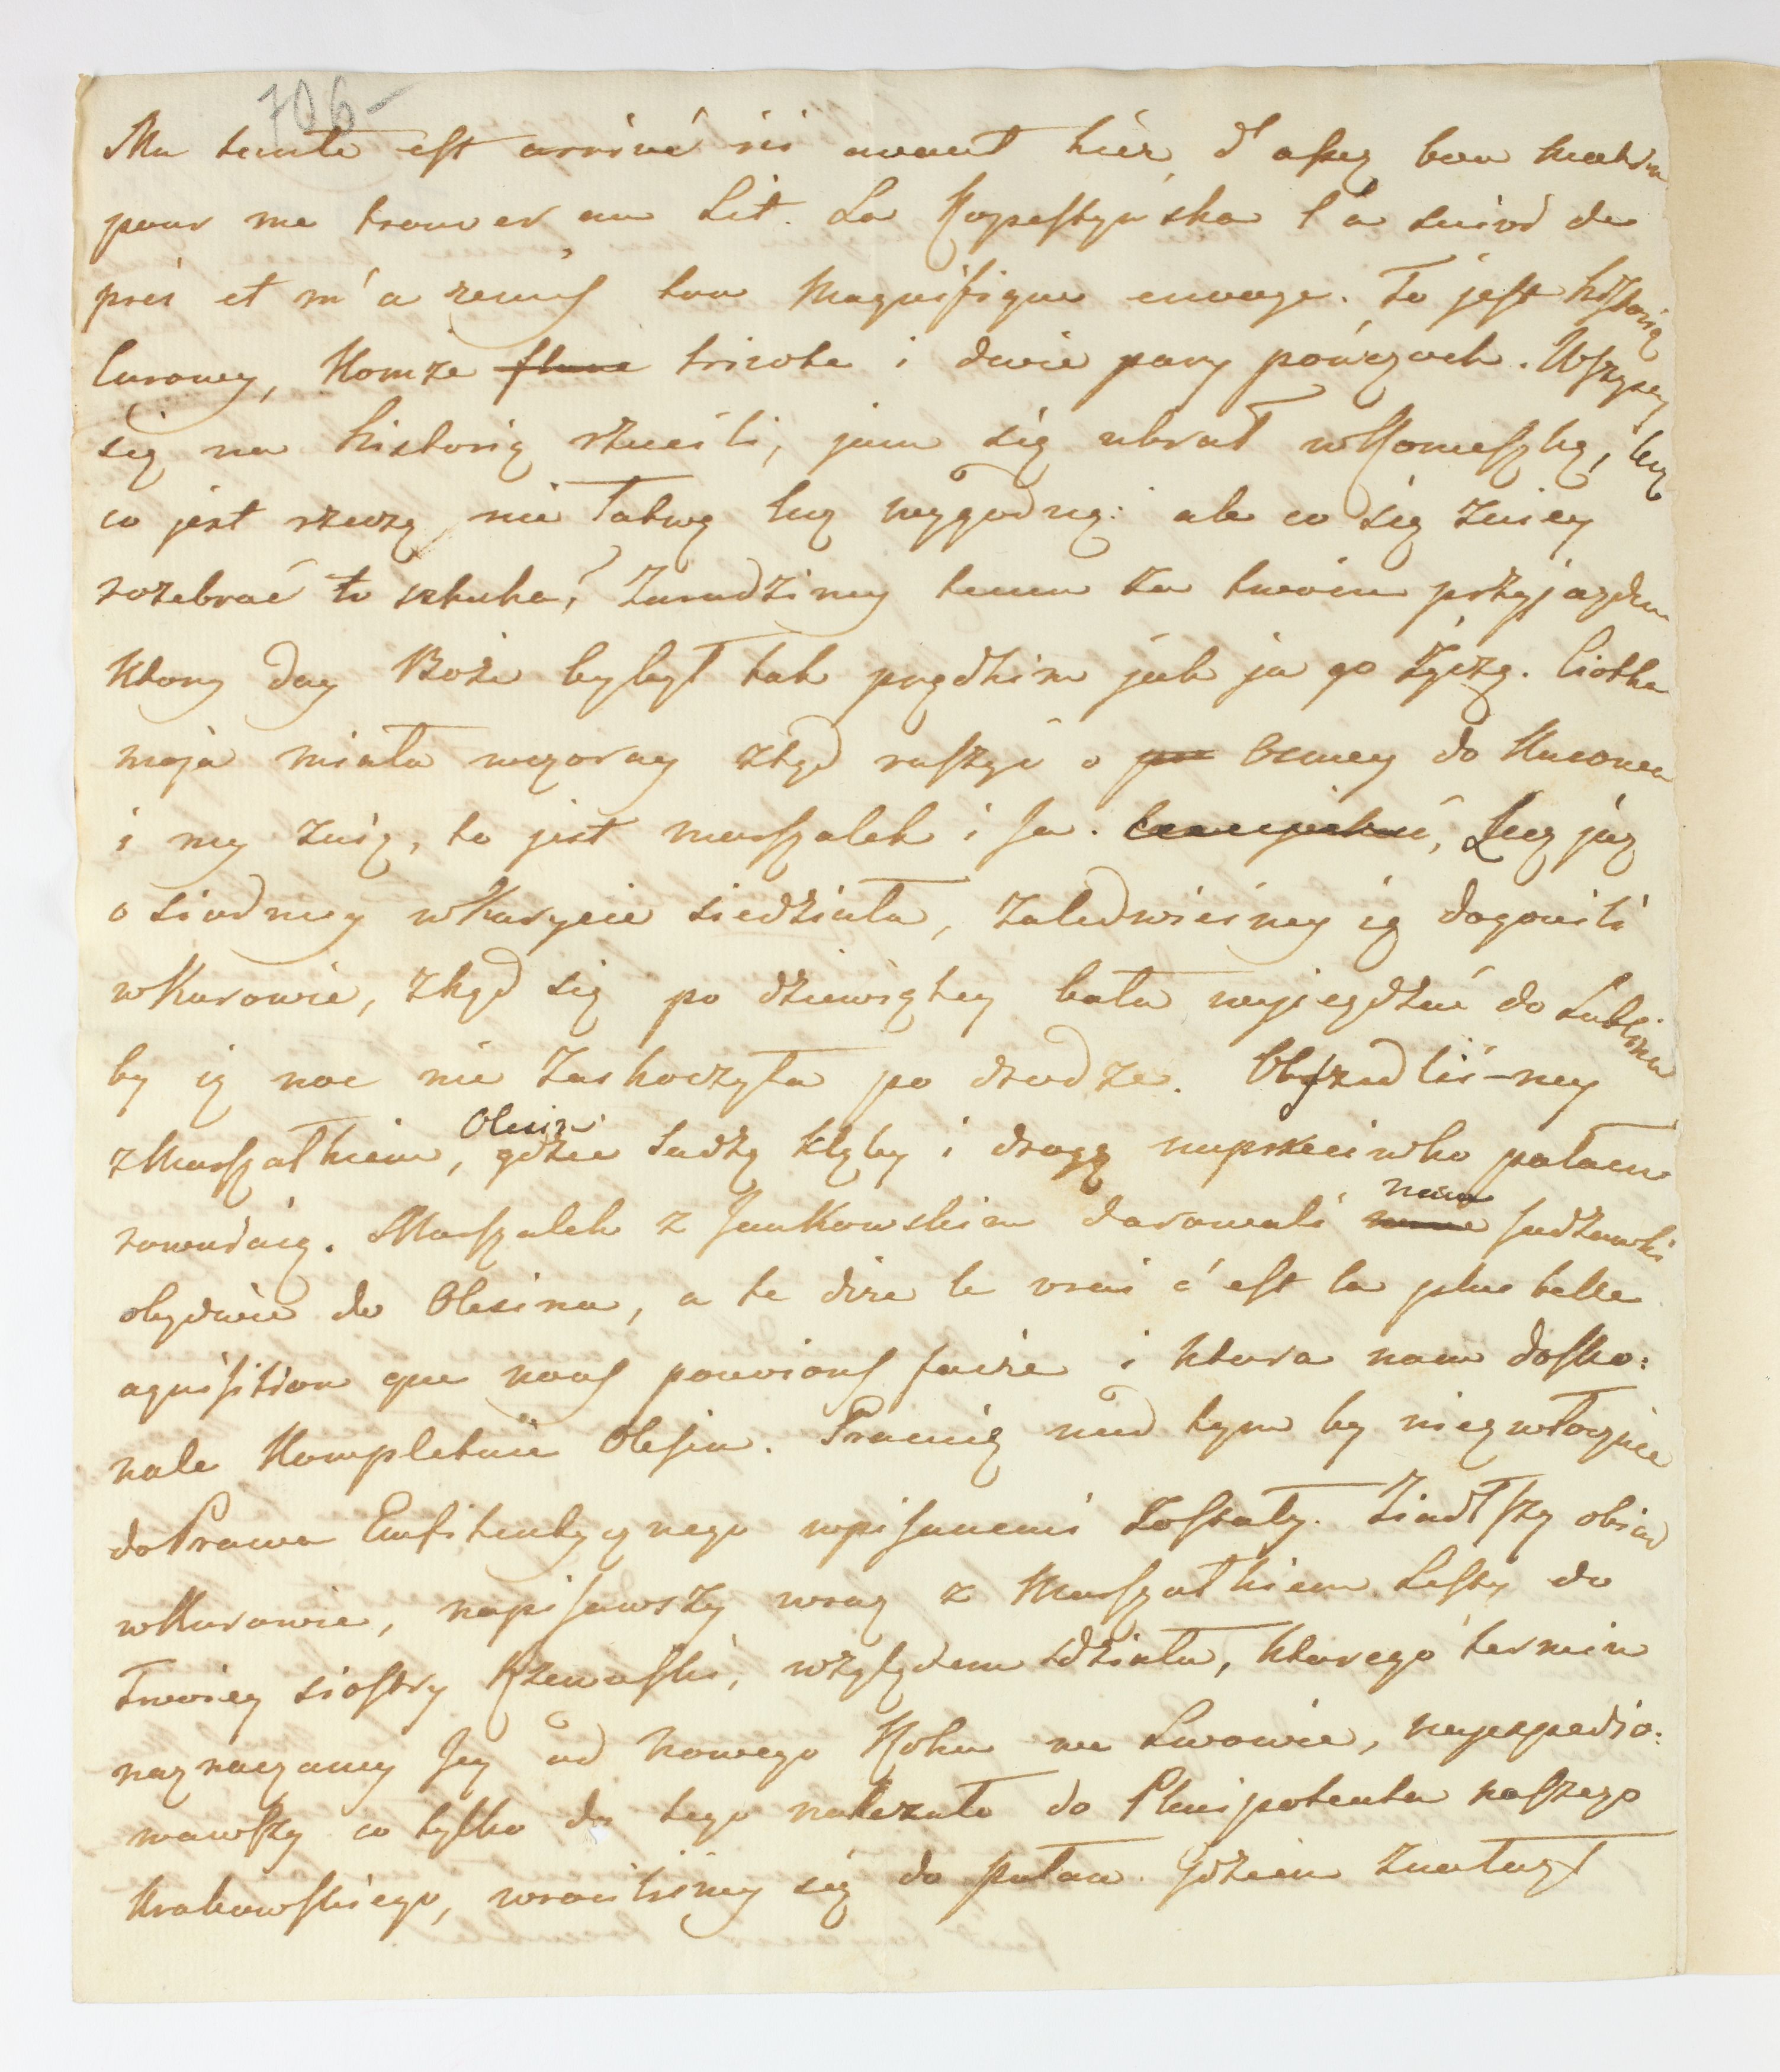 706-
Ma tante est arrivé ici avant hier, d'assez bon matin
pour me trouver au Lit. La Kopestyńska l'a suivi de
près et m'a remis ton Magnifique envoye. To jest historią
Komże tricote i dwie pary pończoch. Wszyscy
się na historią rzucili, jam się ubrał w Komeszkę,
co jest rzeczą nie łatwą lecz wygodną: ale co się zniey
rozebrać to sztuka, Zaradzimy temu za twoim przyjazdem
Ktory day Boże byłbył tak prędkim jak ja go życzę. Ciotka
moja miała wczoray ztąd ruszyć o osmey do Kurowa
i my znią, to jest marszalek i Ja. Lecz juz
o siodmey w Karycie siedziała, zaledwieśmy ią dogonili
w Kurowie, zkąd się po dziewiątey bała wyjezdżać do Lublina
by ią noc nie zaskoczyła po drodze. Objezdliś-my
z Marszałkiem, Olesin gdzie sadzą klęby i drogę naprzeciwko palacu
rownaią. Marszalek z Jankowskim darowali nam sadzawki
obydwie do Olesina, a te dire le vrai c'est la plus belle
aquisition que nous pouvions faire i ktora nam dosko:
nale Kompletuie Olesin. Pracuię nad tym by
do Prawa Emfiteutycznego wpisanemi zostały. Ziadłszy obiad
w Kurowie, napisawszy wraz z Marszałkiem Listy do
twoiey siostry Rzewuski, względem działu, ktorego termin
naznaczamy Jey od nowego Roku we Lwowie, wyexpedio:
wawszy co tylko do tego należało do Plenipotenta naszego
Krakowskiego, wrociliśmy się do Puław. Gdziem znalazł